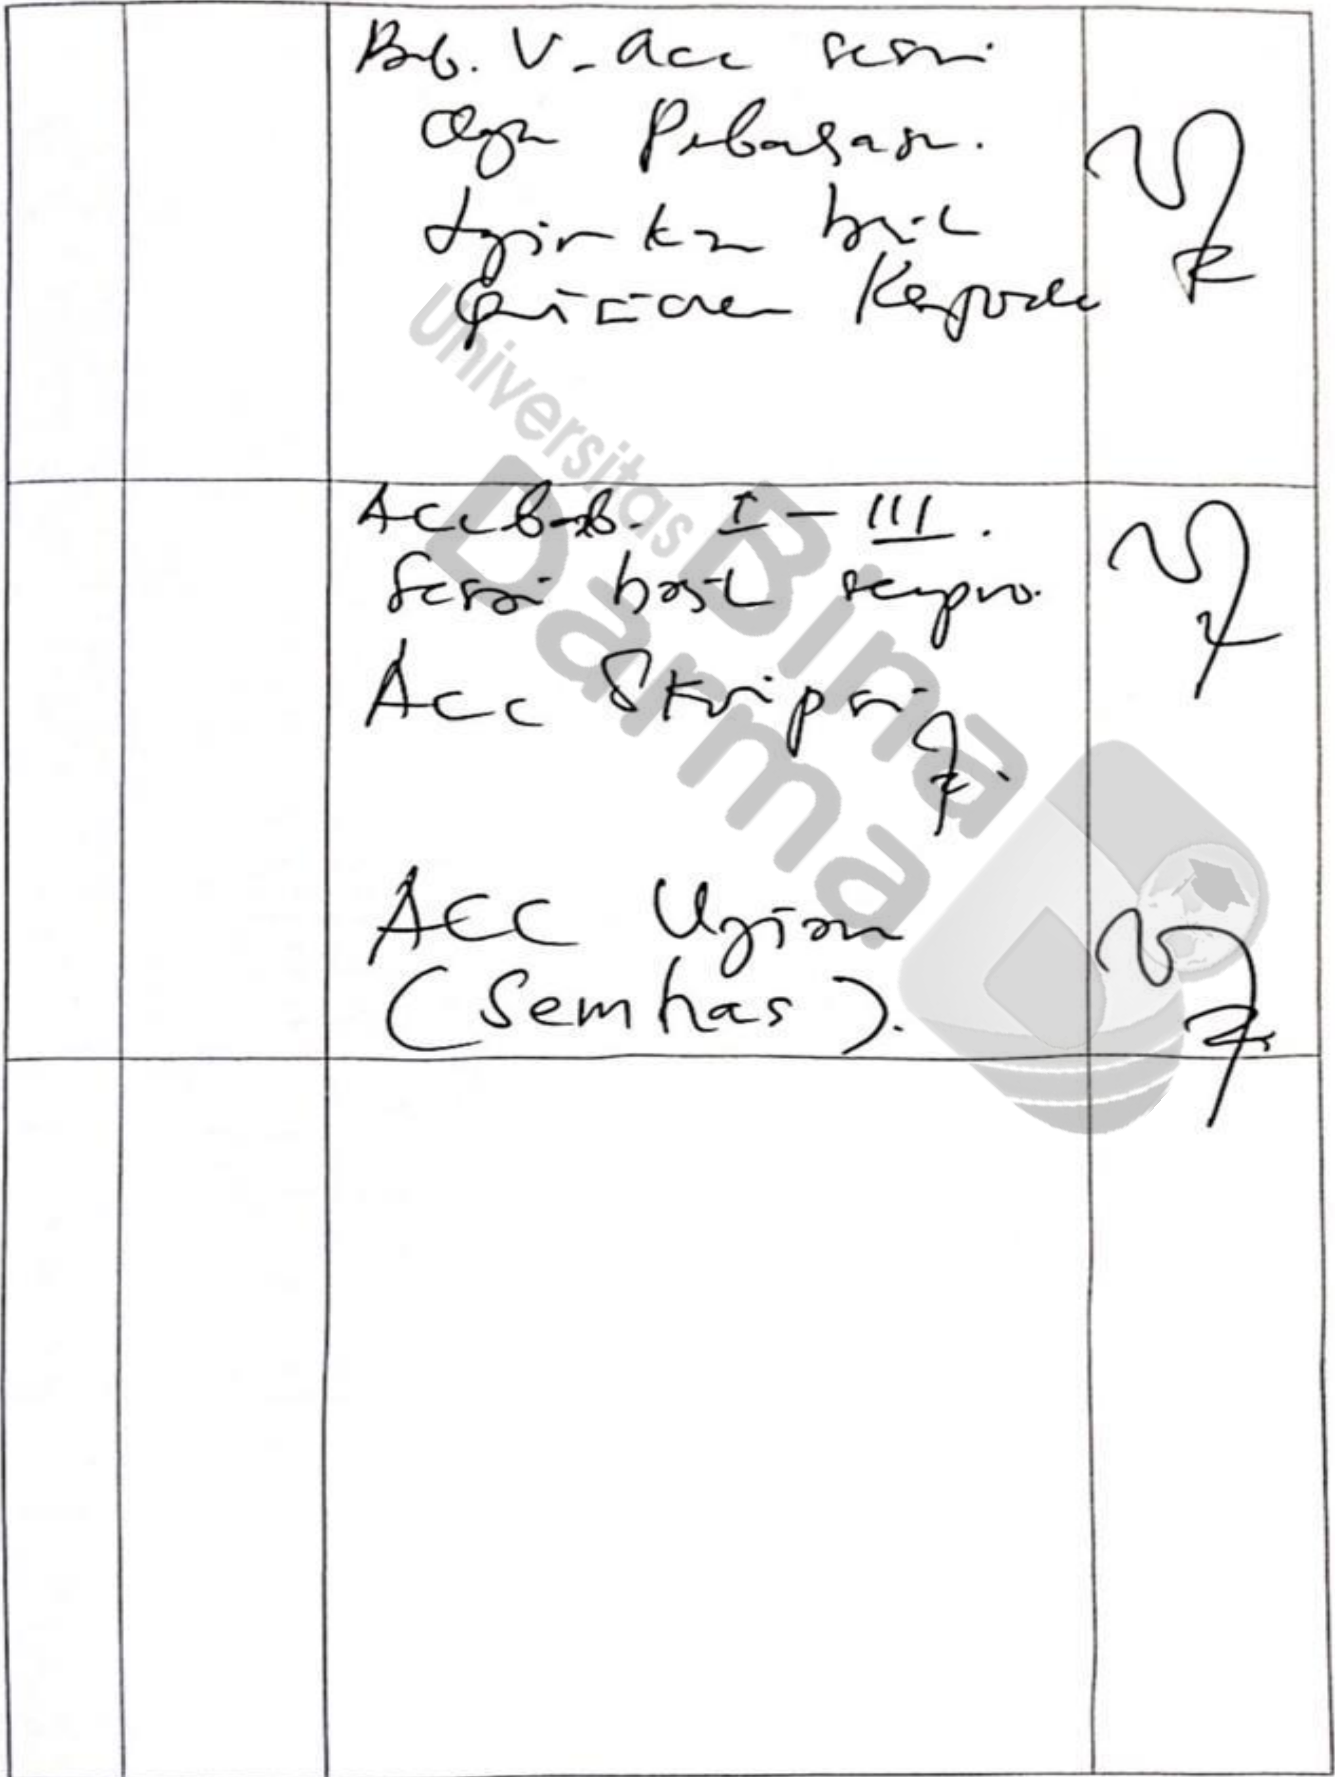 Bab. V - acc sesuai
dgn Pebahasan.
hasil
Kepada
Acc bab. I - III.
Sesuai hasil sempro.
Acc Skripsi
ACC Ujian
(Semhas).
Universitas
Bina
Darma